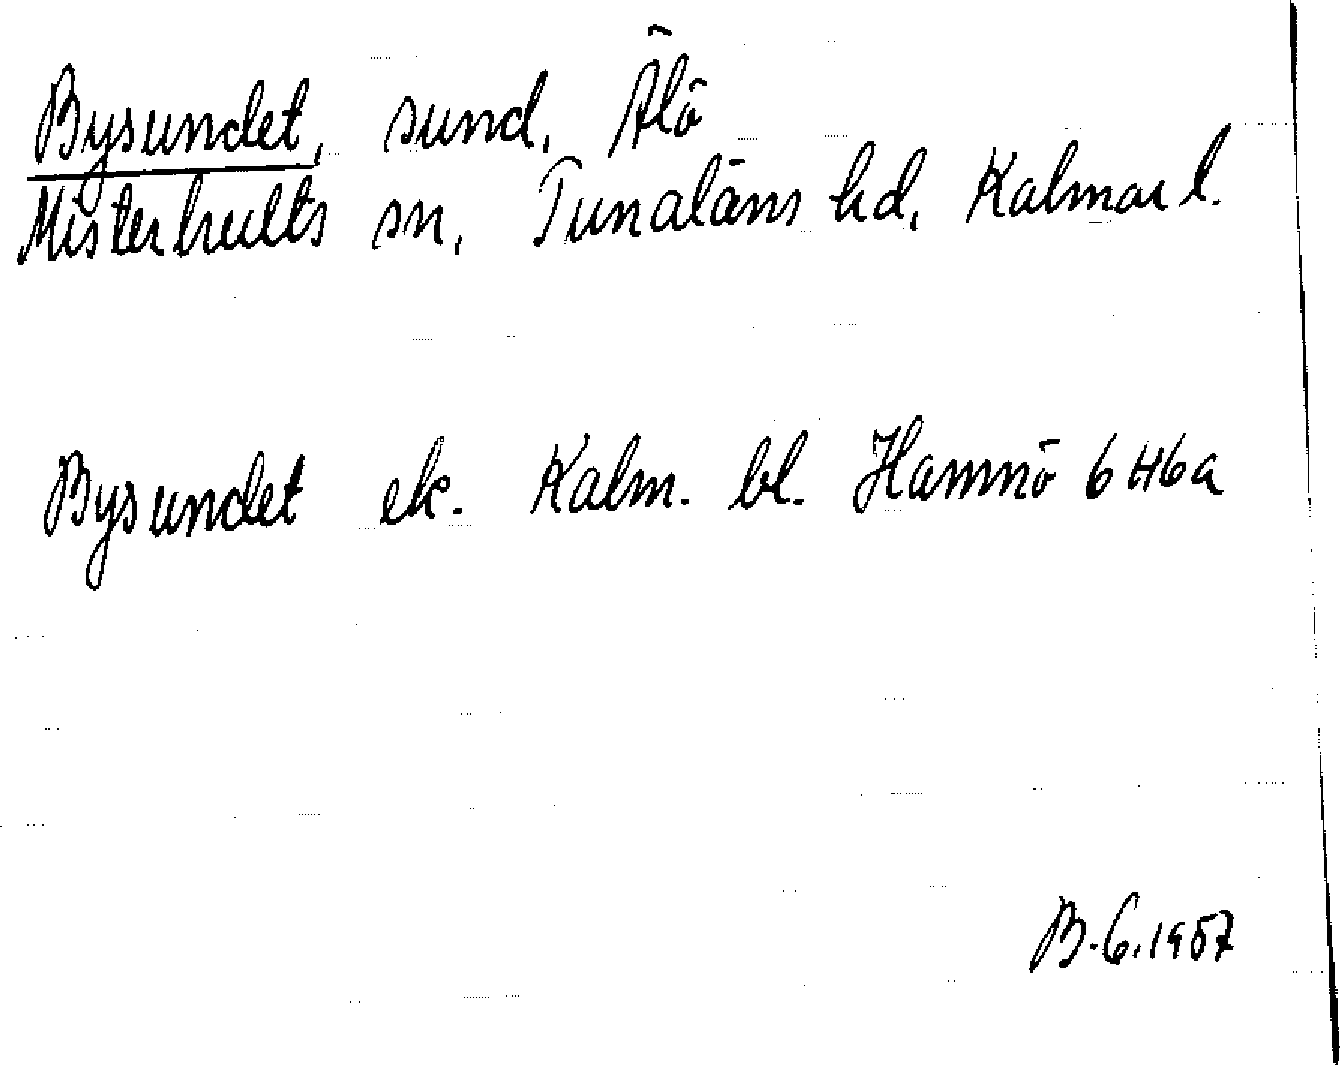 Bysundet, sund, Älö
Misterhults sn, Tunaläns hd, Kalmar l.
Bysundet ek. Kalm. bl. Hamnö 6 H6a
B.G.1957